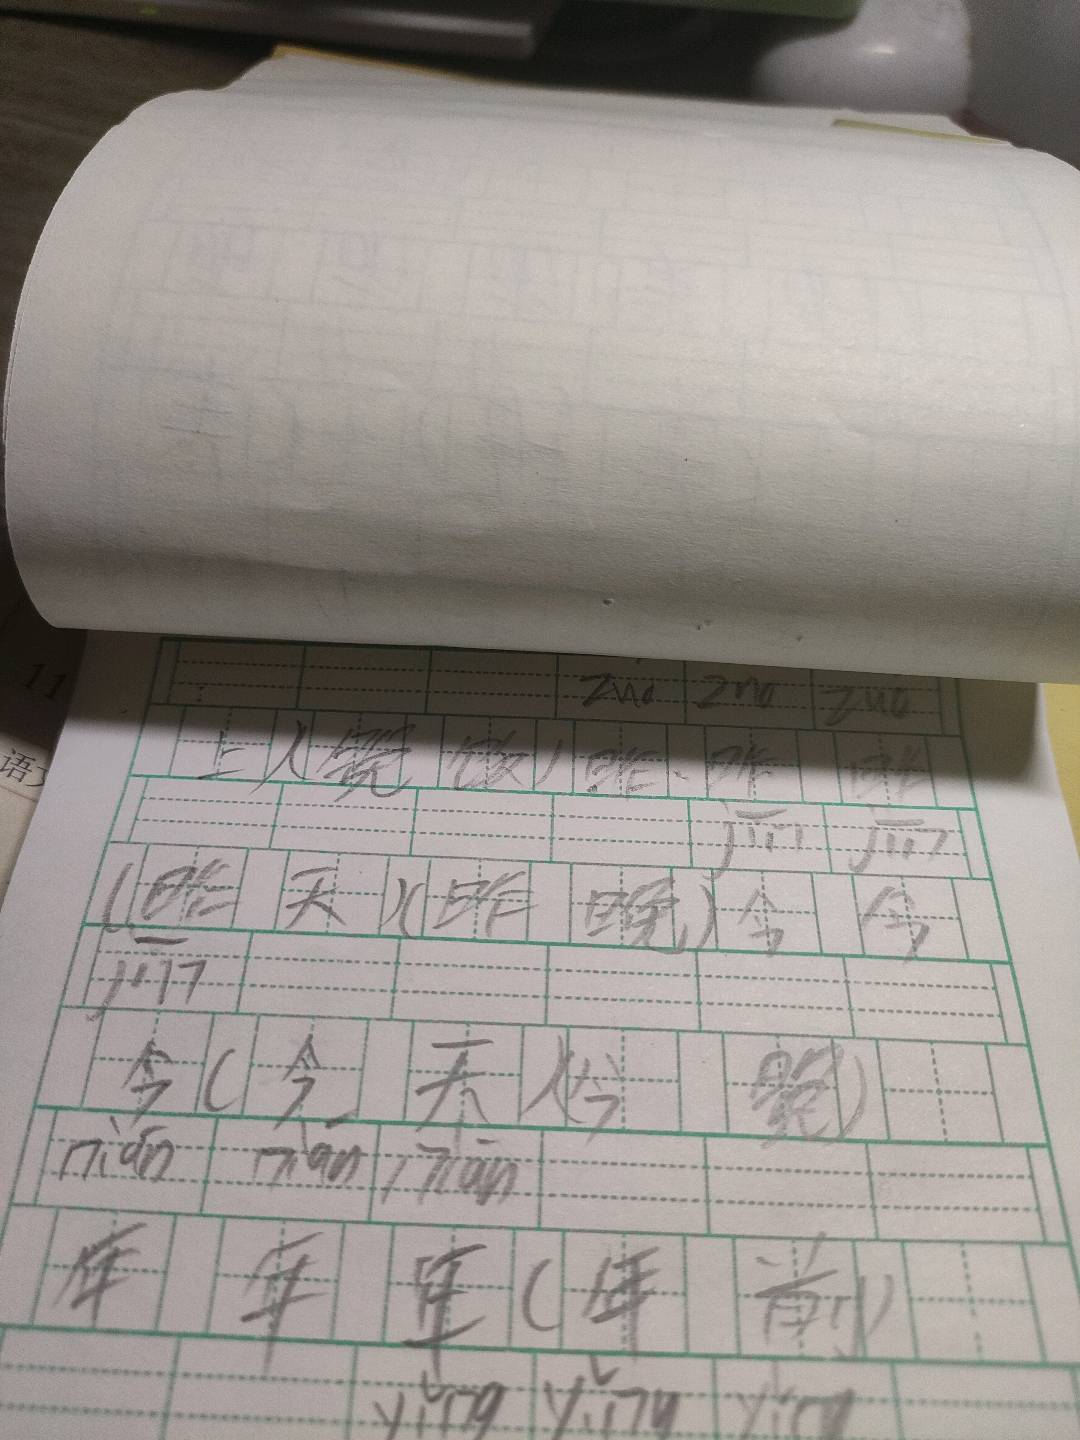 11
语文
zuó zuó zuó
上)(晚饭)昨、昨 昨
jīn jīn
(昨天)(昨晚)今 今
jīn
今(今天)(今晚)
nián nián nián
年 年 年(年前)
yǐng yǐng yǐng